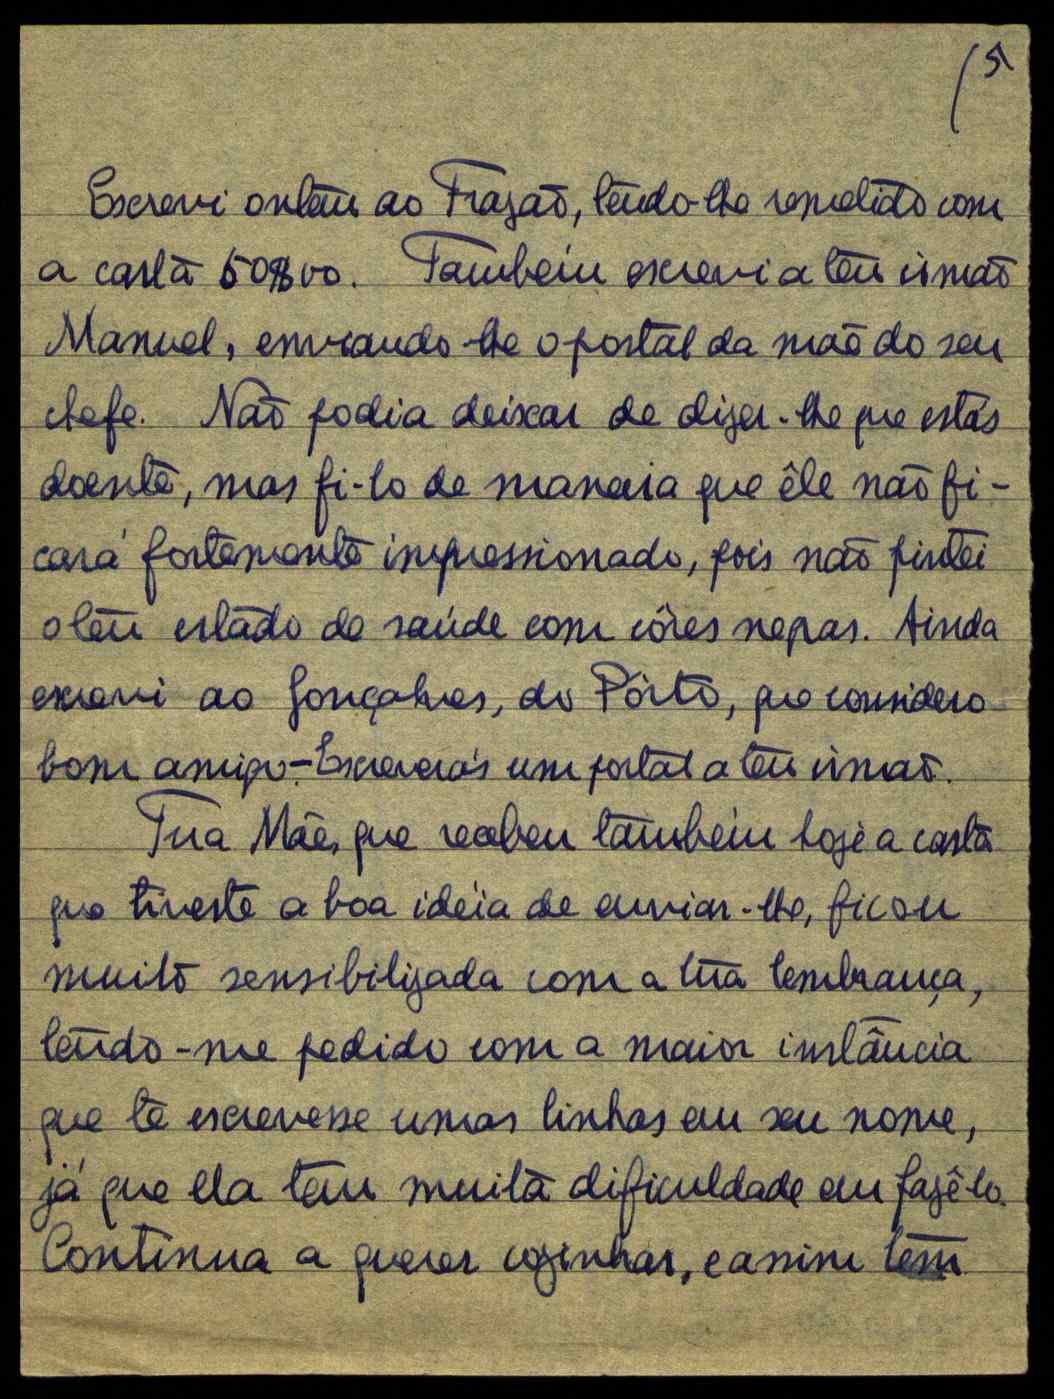 (5
Escrevi ontem ao Frazão, tendo-lhe remetido com
a carta 50$00. Também escrevi a teu irmão
Manuel, enviando-lhe o postal da mão do seu
chefe. Não podia deixar de dizer-lhe que estás
doente, mas fi-lo de maneira que êle não fi-
cará fortemente impressionado, pois não pintei
o teu estado de saúde com côres negras. Ainda
escrevi ao Gonçalves, do Pôrto, que considero
bom amigo - Escreverás um postal a teu irmão.
Tua Mãe, que recebeu também hoje a carta
que tiveste a boa idéia de enviar-lhe, ficou
muito sensibilizada com a tua lembrança,
tendo-me pedido com a maior instância
que te escrevesse umas linhas em seu nome,
já que ela tem muita dificuldade em fazê-lo.
Continua a querer cozinhar, e assim tem